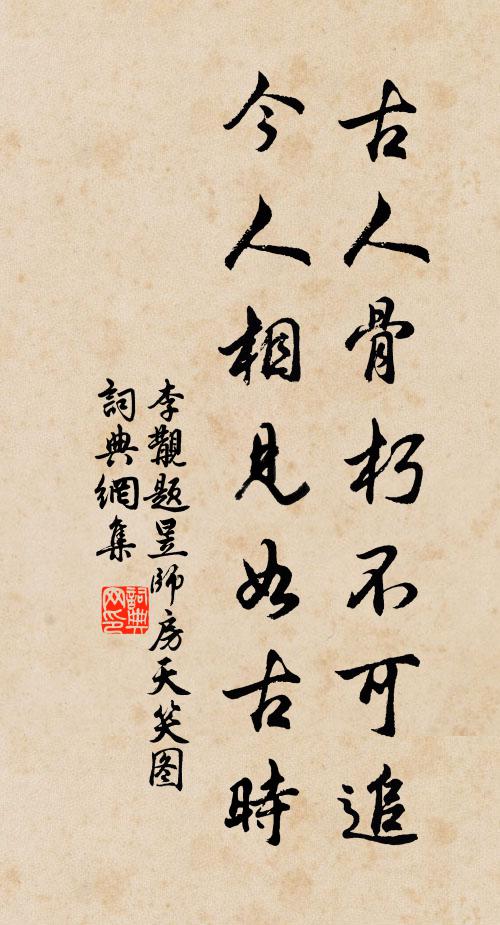 古人骨朽不可追
今人相見如古時
李觀題昱師房天笑图
詞典網集
詞典
网印